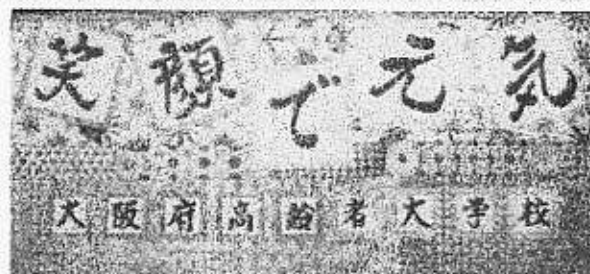 笑顔で元気
大阪府高齢者大学校